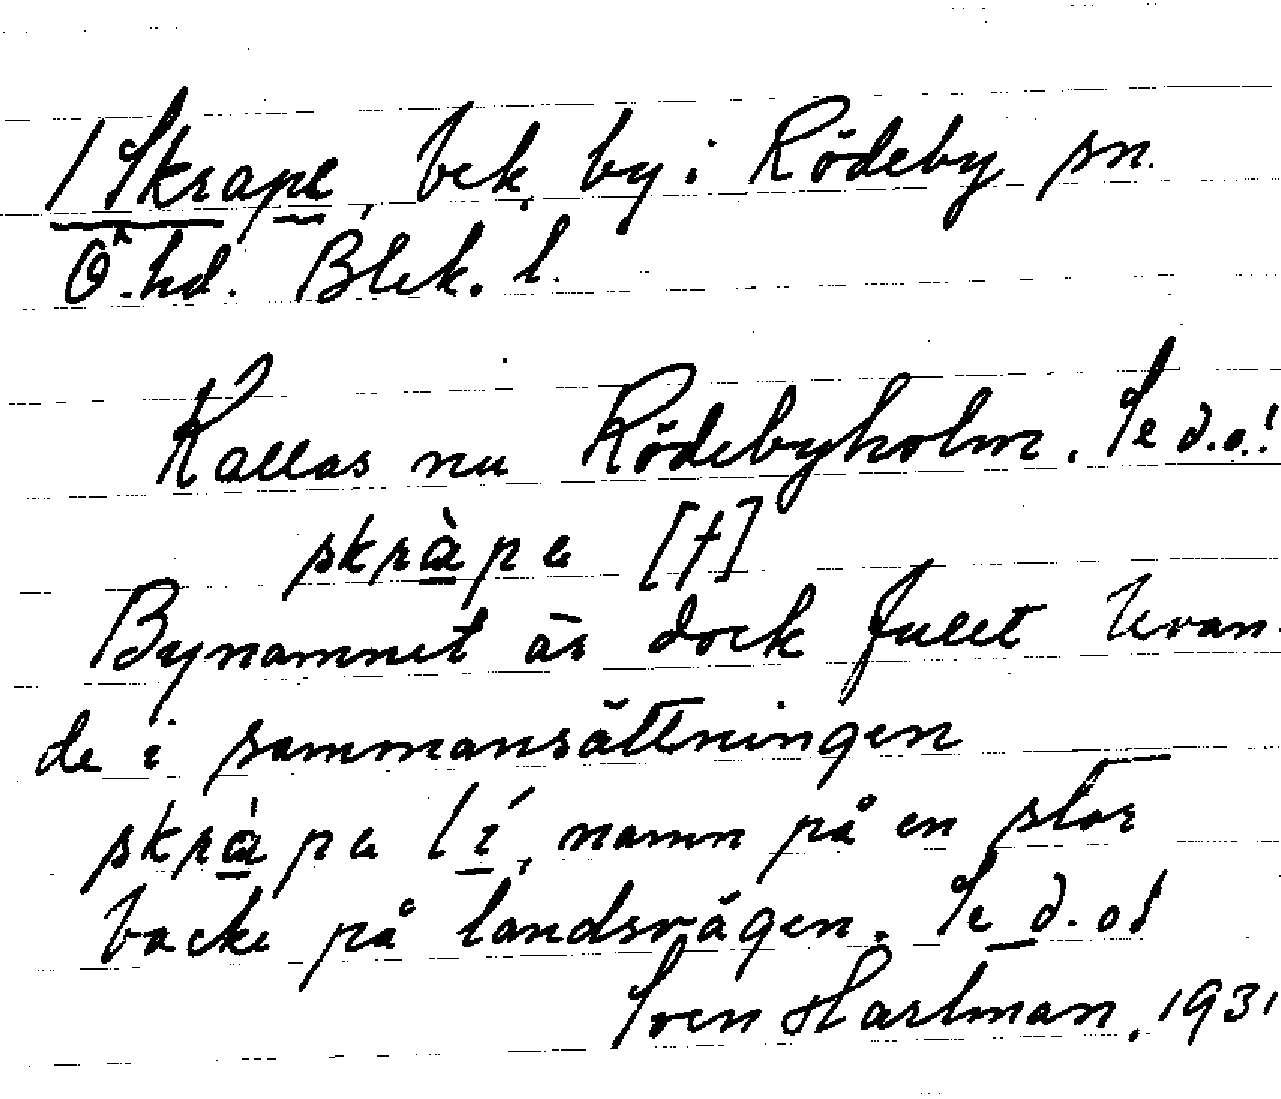 / Skrape, bek. by i Rödeby sn.
Ö.hd. Blek. l.
Kallas nu Rödebyholm. Se d.o.!
skràpa [†]
Bynamnet är dock fullt levan-
de i sammansättningen
skràpa lí, namn på en stor
backe på landsvägen. Se d.o!
Sven Hartman. 1931